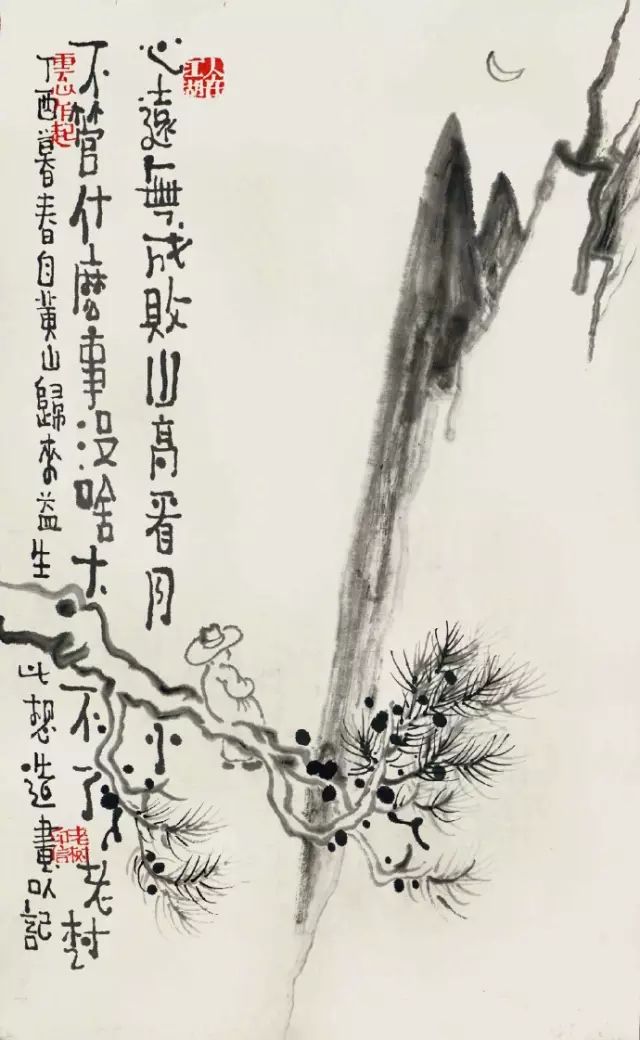 人在江湖
心遠無成敗山高看月小
不管什麼事没啥大不了老树
丁酉暮春自黄山歸來益生此想造畫以記